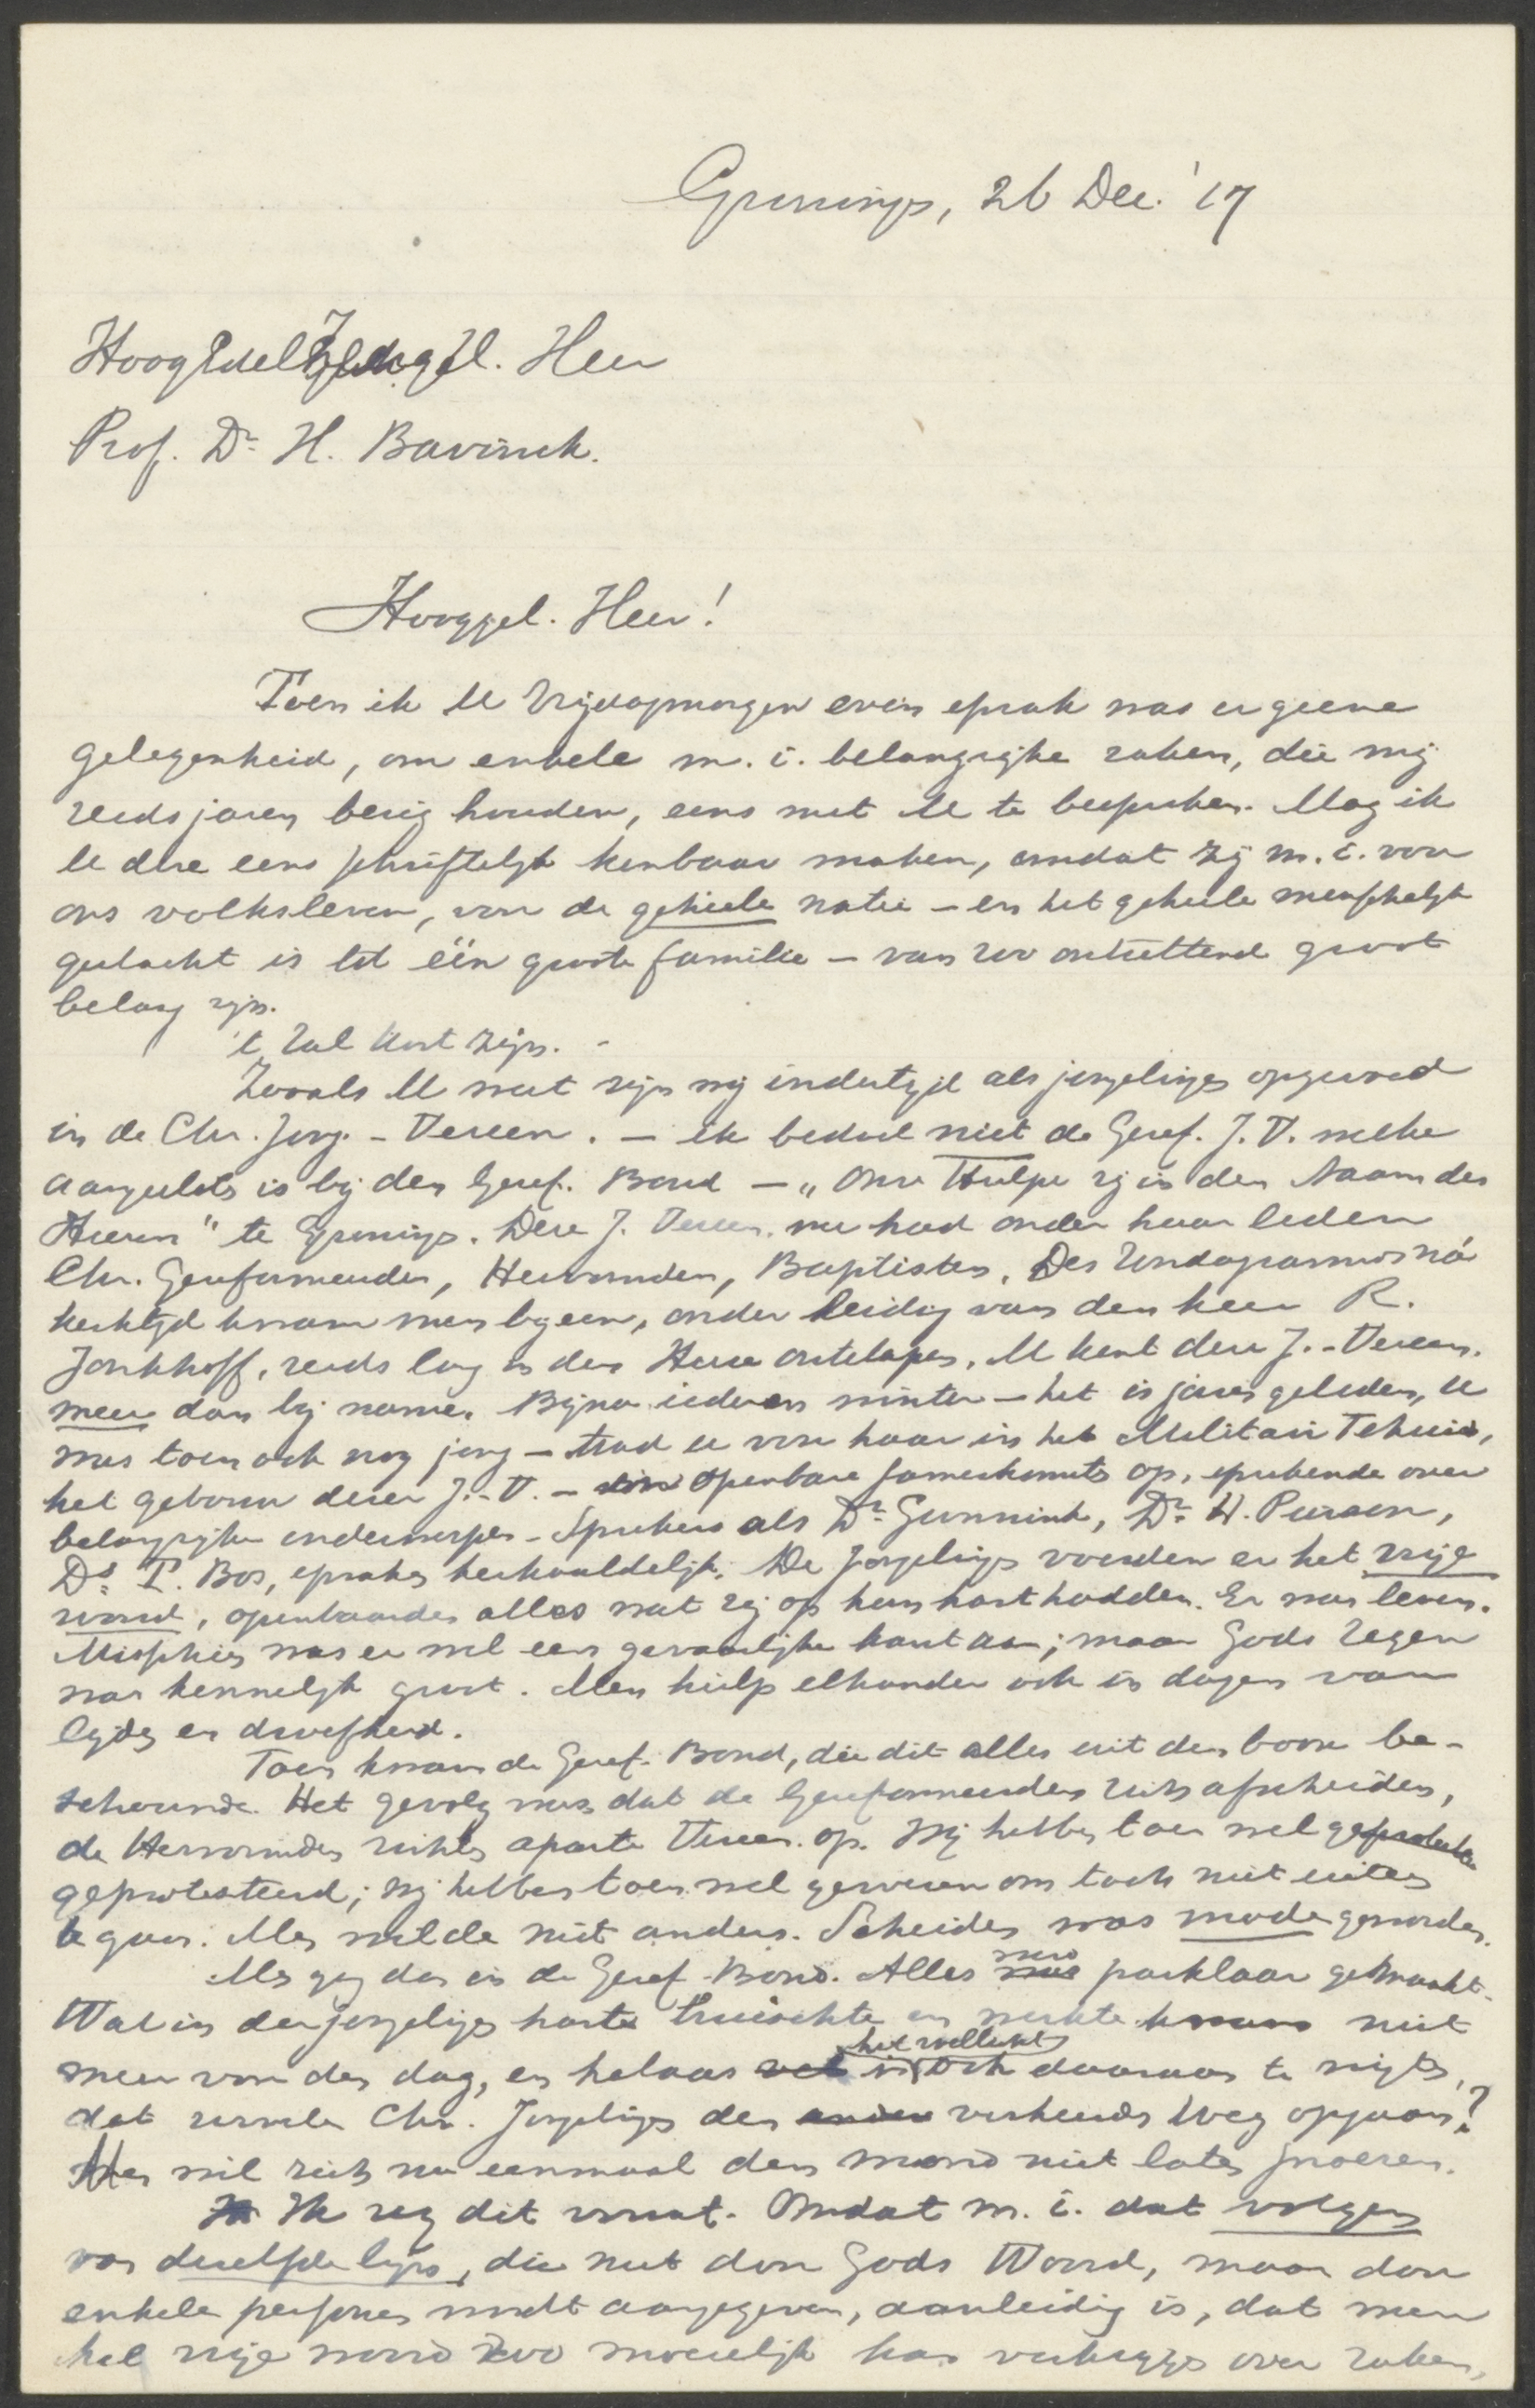 Groningen, 26 Dec. '17
HoogEdel gel. Heer
Prof. Dr. H. Bavinck.
Hooggel. Heer!
Toen ik U Vrijdagmorgen even sprak was er geene
gelegenheid, om enkele m. i. belangrijke zaken, die mij
reeds jaren bezig houden, eens met U te bespreken. Mag ik
U deze eens schriftelijk kenbaar maken, omdat zij m. i. voor
ons volksleven, voor de geheele natie – en het geheele menschelijk
geslacht is tot één groote familie – van zoo ontzettend groot
belang zijn.
't Zal kort zijn. –
Zooals U weet zijn wij indertijd als jongelingen opgevoed
in de Chr. Jong. - Vereen. – ik bedoel niet de Geref. J. V. welke
aangesloten is bij den Geref. Bond – „Onze Hulpe zij in den Naam des
Heeren" te Groningen. Deze J. Vereen. nu had onder haar leden
Chr. Gereformeerden, Hervormden, Baptisten. Des Zondagsavonds ná
kerktijd kwam men bijeen, onder leiding van den heer R.
Jonkhoff, reeds lang in den Heere ontslapen. U kent deze J. - Vereen.
meer dan bij name. Bijna iederen winter – het is jaren geleden, U
was toen ook nog jong – trad U voor haar in het Militair Tehuis,
het gebouw dezer J. - V. – openbare samenkomsten op, sprekende over
belangrijke onderwerpen. Sprekers als Dr. Gunnink, Dr. H. Pierson,
Ds. T. Bos, spraken herhaaldelijk. De jongelingen voerden er het vrije
woord, openbaarden alles wat zij op hun hart hadden. Er was leven.
Misschien was er wel een gevaarlijke kant aan; maar Gods Zegen
was kennelijk groot. Men hielp elkander ook in dagen van
lijden en droefheid.
Toen kwam de Geref. Bond, die dit alles uit den booze be-
schouwde. Het gevolg was dat de Gereformeerden zich afscheidden,
de Hervormden richtten aparte Vereen. op. Wij hebben toen wel
geprotesteerd; wij hebben toen wel gewezen om toch niet uiteen
te gaan. Men wilde niet anders. Scheiden was mode geworden.
Men ging dan in de Geref. Bond. Alles werd pasklaar gemaakt.
Wat in der jongelingen harte bruischte en werkte kwam niet
meer voor den dag, en helaas is het wellicht ook daaraan te wijten,
dat zoovele Chr. Jongelingen den verkeerden Weg opgaan?
Men wil zich nu eenmaal den mond niet laten snoeren.
Ik zeg dit vooraf. Omdat m. i. dat volgen
van dezelfde lijn, die niet door Gods Woord, maar door
enkele personen wordt aangegeven, aanleiding is, dat men
het vrije woord zoo moeielijk kan verkrijgen over zaken,